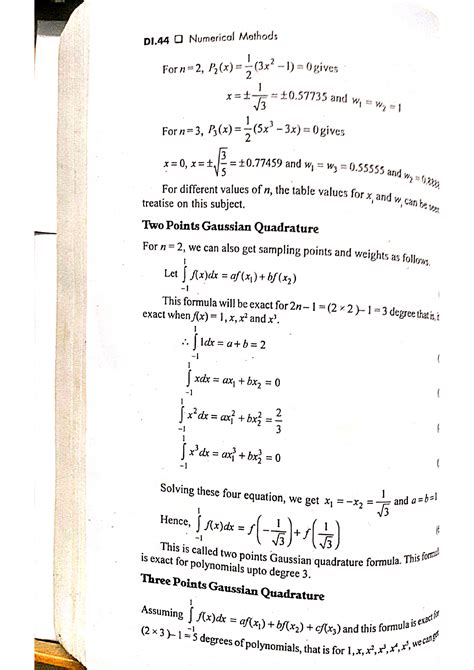 DI.44 ❑ Numerical Methods
For n = 2, P₂(x) = 1/2 (3x² − 1) = 0 gives
x = ± 1/√3 = ±0.57735 and w₁ = w₂ = 1
For n = 3, P₃(x) = 1/2 (5x³ − 3x) = 0 gives
x = 0, x = ±√(3/5) = ±0.77459 and w₁ = w₃ = 0.55555 and w₂ =
For different values of n, the table values for xᵢ and wᵢ can be seen
treatise on this subject.
Two Points Gaussian Quadrature
For n = 2, we can also get sampling points and weights as follows.
Let ∫₋₁¹ f(x)dx = af(x₁) + bf(x₂)
This formula will be exact for 2n − 1 = (2 × 2) − 1 = 3 degree that is, it
exact when f(x) = 1, x, x² and x³.
∴ ∫₋₁¹ 1dx = a + b = 2
∫₋₁¹ xdx = ax₁ + bx₂ = 0
∫₋₁¹ x²dx = ax₁² + bx₂² = 2/3
∫₋₁¹ x³dx = ax₁³ + bx₂³ = 0
Solving these four equation, we get x₁ = −x₂ = 1/√3 and a = b = 1
Hence, ∫₋₁¹ f(x)dx = f(−1/√3) + f(1/√3)
This is called two points Gaussian quadrature formula. This formula
is exact for polynomials upto degree 3.
Three Points Gaussian Quadrature
Assuming ∫₋₁¹ f(x)dx = af(x₁) + bf(x₂) + cf(x₃) and this formula is exact for
(2 × 3) − 1 = 5 degrees of polynomials, that is for 1, x, x², x³, x⁴, x⁵, we can get